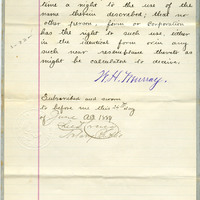 time a right to the use of the
name therein described; that no
other person, firm or corporation
has the right to such use, either
in the identical form or in any
such near resemblance thereto as
might be calculated to deceive.
W. H. Murray.
Subscribed and sworn
to before me this day
of June A.D. 1899